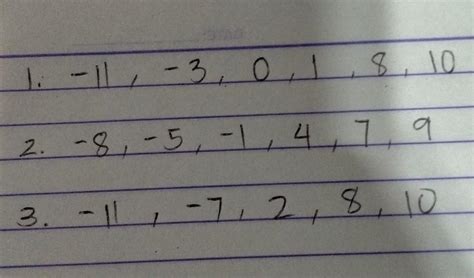 1. -11, -3, 0, 1, 8, 10
2. -8, -5, -1, 4, 7, 9
3. -11, -7, 2, 8, 10